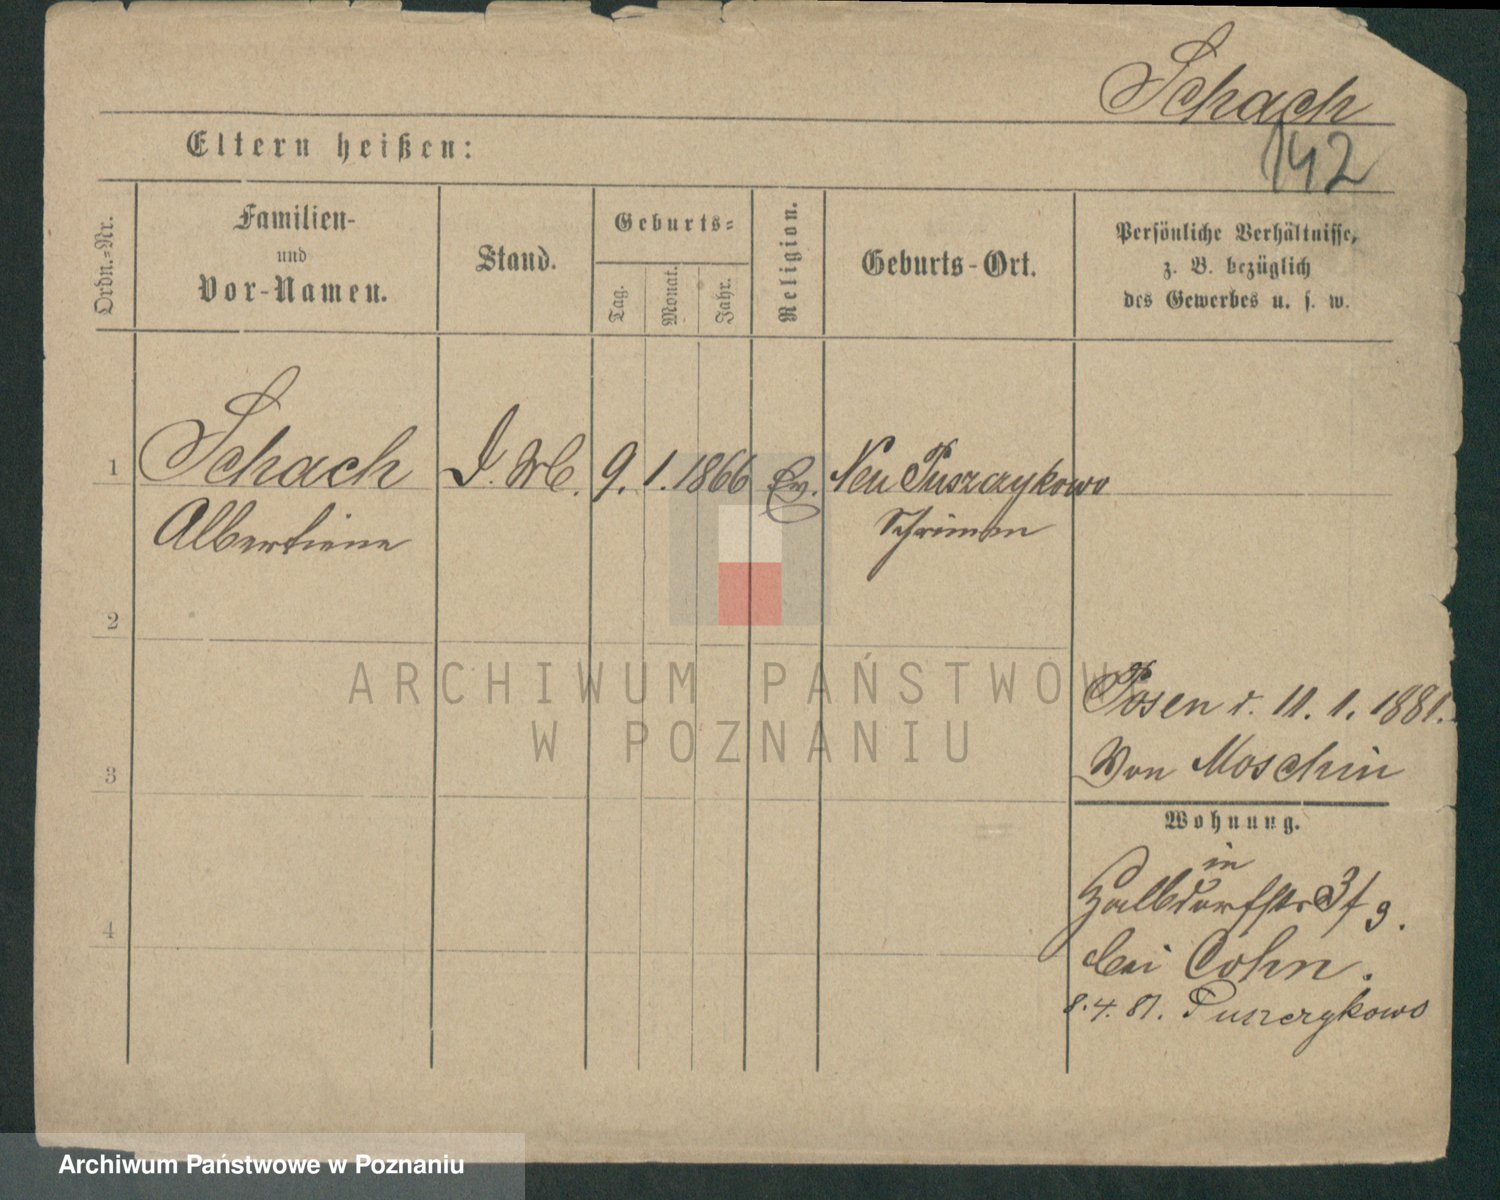 Schach
142
Eltern heißen:
Ordn.-Nr.
Familien-
und
Vor-Namen.
Stand.
Geburts-
Tag.
Monat.
Jahr.
Religion.
Geburts-Ort.
Persönliche Verhältnisse,
z. B. bezüglich
des Gewerbes u. s. w.
1 Schach 9. 1. 1866 Ev. Neu Puszczykowo
Albertiene Schrimm
2
Posen d. 11. 1. 1881.
Von Moschin
3
Wohnung.
in
Halbdorfstr 3/9.
4
bei Cohn.
8.4.81. Puszczykowo
ARCHIWUM PAŃSTWOW
W POZNANIU
Archiwum Państwowe w Poznaniu